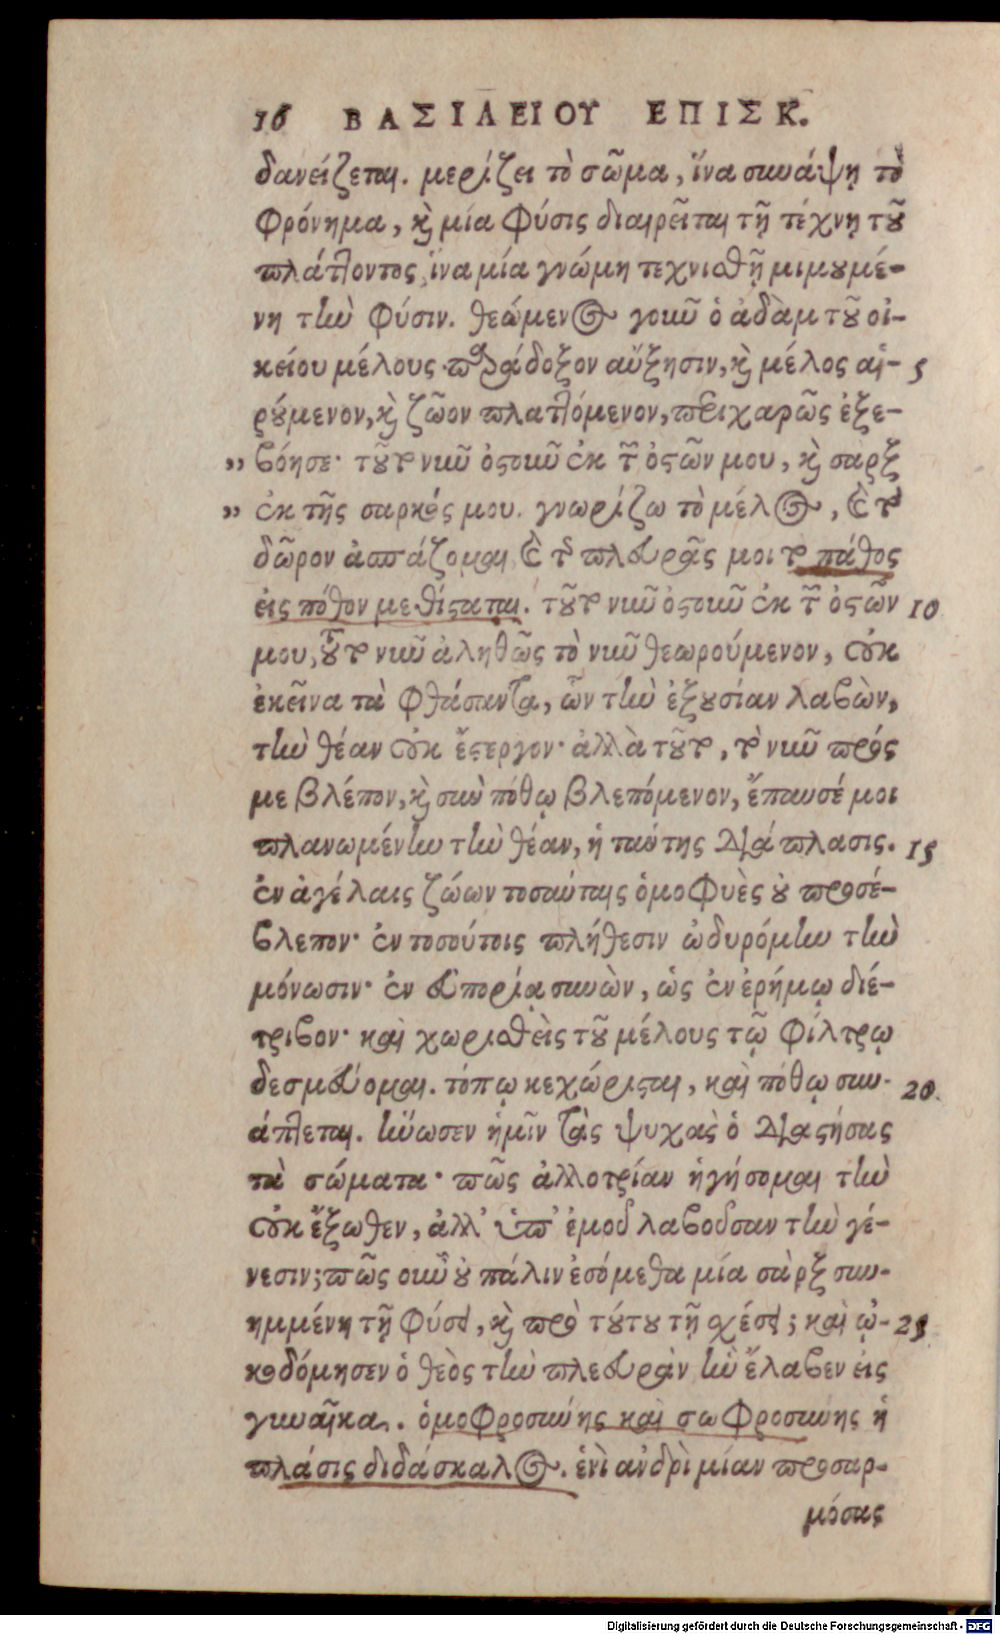 16 ΒΑΣΙΛΕΙΟΥ ΕΠΙΣΚ.
δανείζεται. μερίζει τὸ σῶμα, ἵνα συνάψῃ τὸ
φρόνημα, καὶ μία φύσις διαιρεῖται τῇ τέχνῃ τοῦ
πλάττοντος, ἵνα μία γνώμη τεχνιθῇ μιμουμέ-
νη τὴν φύσιν. θεώμενος γοῦν ὁ ἀδὰμ τοῦ οἰ-
κείου μέλους παράδοξον αὔξησιν, καὶ μέλος αἱ- 5
ρούμενον, καὶ ζῶον πλαττόμενον, περιχαρῶς ἐξε-
„ βόησε· τοῦτο νῦν ὀστοῦν ἐκ τῶν ὀστῶν μου, καὶ σαρξ
„ ἐκ τῆς σαρκός μου. γνωρίζω τὸ μέλος, καὶ τὸ
δῶρον ἀσπάζομαι, καὶ τῆς πλευρᾶς μοι τὸ πάθος
εἰς πόθον μεθίσταται. τοῦτο νῦν ὀστοῦν ἐκ τῶν ὀστῶν 10
μου, τοῦτο νῦν ἀληθῶς τὸ νῦν θεωρούμενον, οὐκ
ἐκεῖνα τὰ φθάσαντα, ὧν τὴν ἐξουσίαν λαβὼν,
τὴν θέαν οὐκ ἔστεργον· ἀλλὰ τοῦτο, τὸ νῦν πρός
με βλέπον, καὶ σὺν πόθῳ βλεπόμενον, ἔπαυσέ μοι
πλανωμένην τὴν θέαν, ἡ ταύτης διάπλασις. 15
ἐν ἀγέλαις ζώων τοσαύταις ὁμοφυὲς οὐ προσέ-
βλεπον· ἐν τοσούτοις πλήθεσιν ὠδυρόμην τὴν
μόνωσιν· ἐν εὐπορίᾳ συνὼν, ὡς ἐν ἐρήμῳ διέ-
τριβον· καὶ χωρισθεὶς τοῦ μέλους τῷ φίλτρῳ
δεσμεύομαι. τόπῳ κεχώρισται, καὶ πόθῳ συν-
άπτεται. 20
ἥνωσεν ἡμῖν τὰς ψυχὰς ὁ διαστήσας
τὰ σώματα· πῶς ἀλλοτρίαν ἡγήσομαι τὴν
οὐκ ἔξωθεν, ἀλλ' ὑπ' ἐμοῦ λαβοῦσαν τὴν γέ-
νεσιν; πῶς οὖν οὐ πάλιν ἐσόμεθα μία σὰρξ συν-
ημμένη τῇ φύσει, καὶ πρὸ τούτου τῇ σχέσει; καὶ ᾠ- 25
κοδόμησεν ὁ θεὸς τὴν πλευρὰν ἣν ἔλαβεν εἰς
γυναῖκα. ὁμοφροσύνης καὶ σωφροσύνης ἡ
πλάσις διδάσκαλος. ἑνὶ ἀνδρὶ μίαν προσαρ-
μόσας
Digitalisierung gefördert durch die Deutsche Forschungsgemeinschaft - DFG